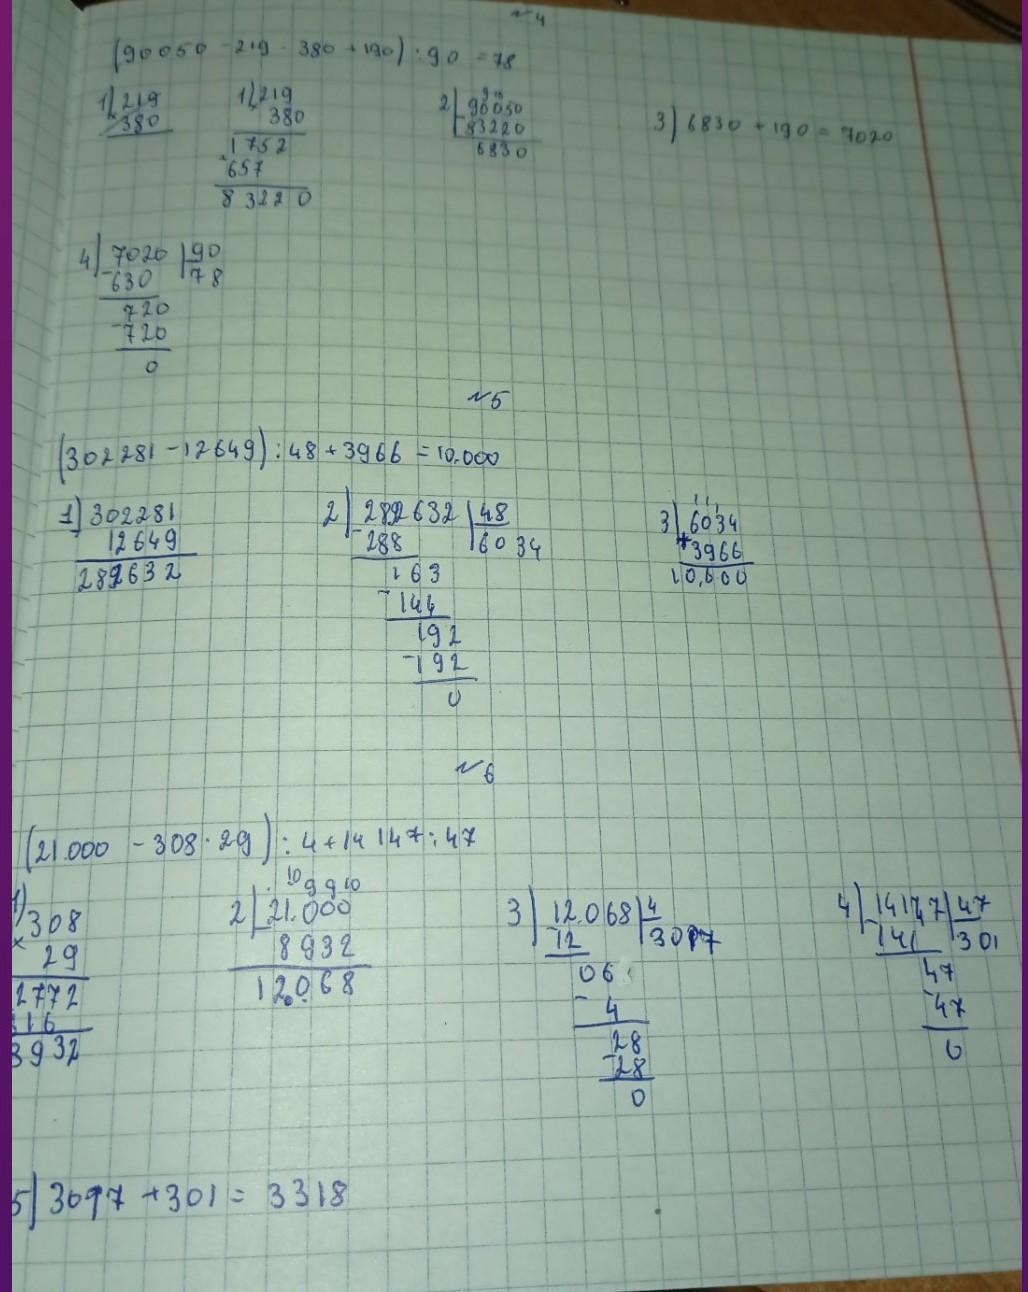 №4
(90050 - 219 · 380 + 190) : 90 = 78
1) 219
380
1) 219
380
1752
657
83220
2) 90050
83220
6830
3) 6830 + 190 = 7020
4) 7020 | 90
-630 | 78
720
-720
0
№5
(302281 - 12649) : 48 + 3966 = 10.000
1) 302281
12649
289632
2) 289632 | 48
-288 | 6034
163
-144
192
-192
0
3) 6034
+3966
10,000
№6
(21.000 - 308 · 29) : 4 + 14147 : 47
1)
308
× 29
2772
616
8932
10 9 9 10
2) 21.000
8932
12.068
3) 12.068 | 4
-12 | 3017
06
- 4
28
-28
0
4) 14147 | 47
-141 | 301
47
-47
0
5) 3017 + 301 = 3318